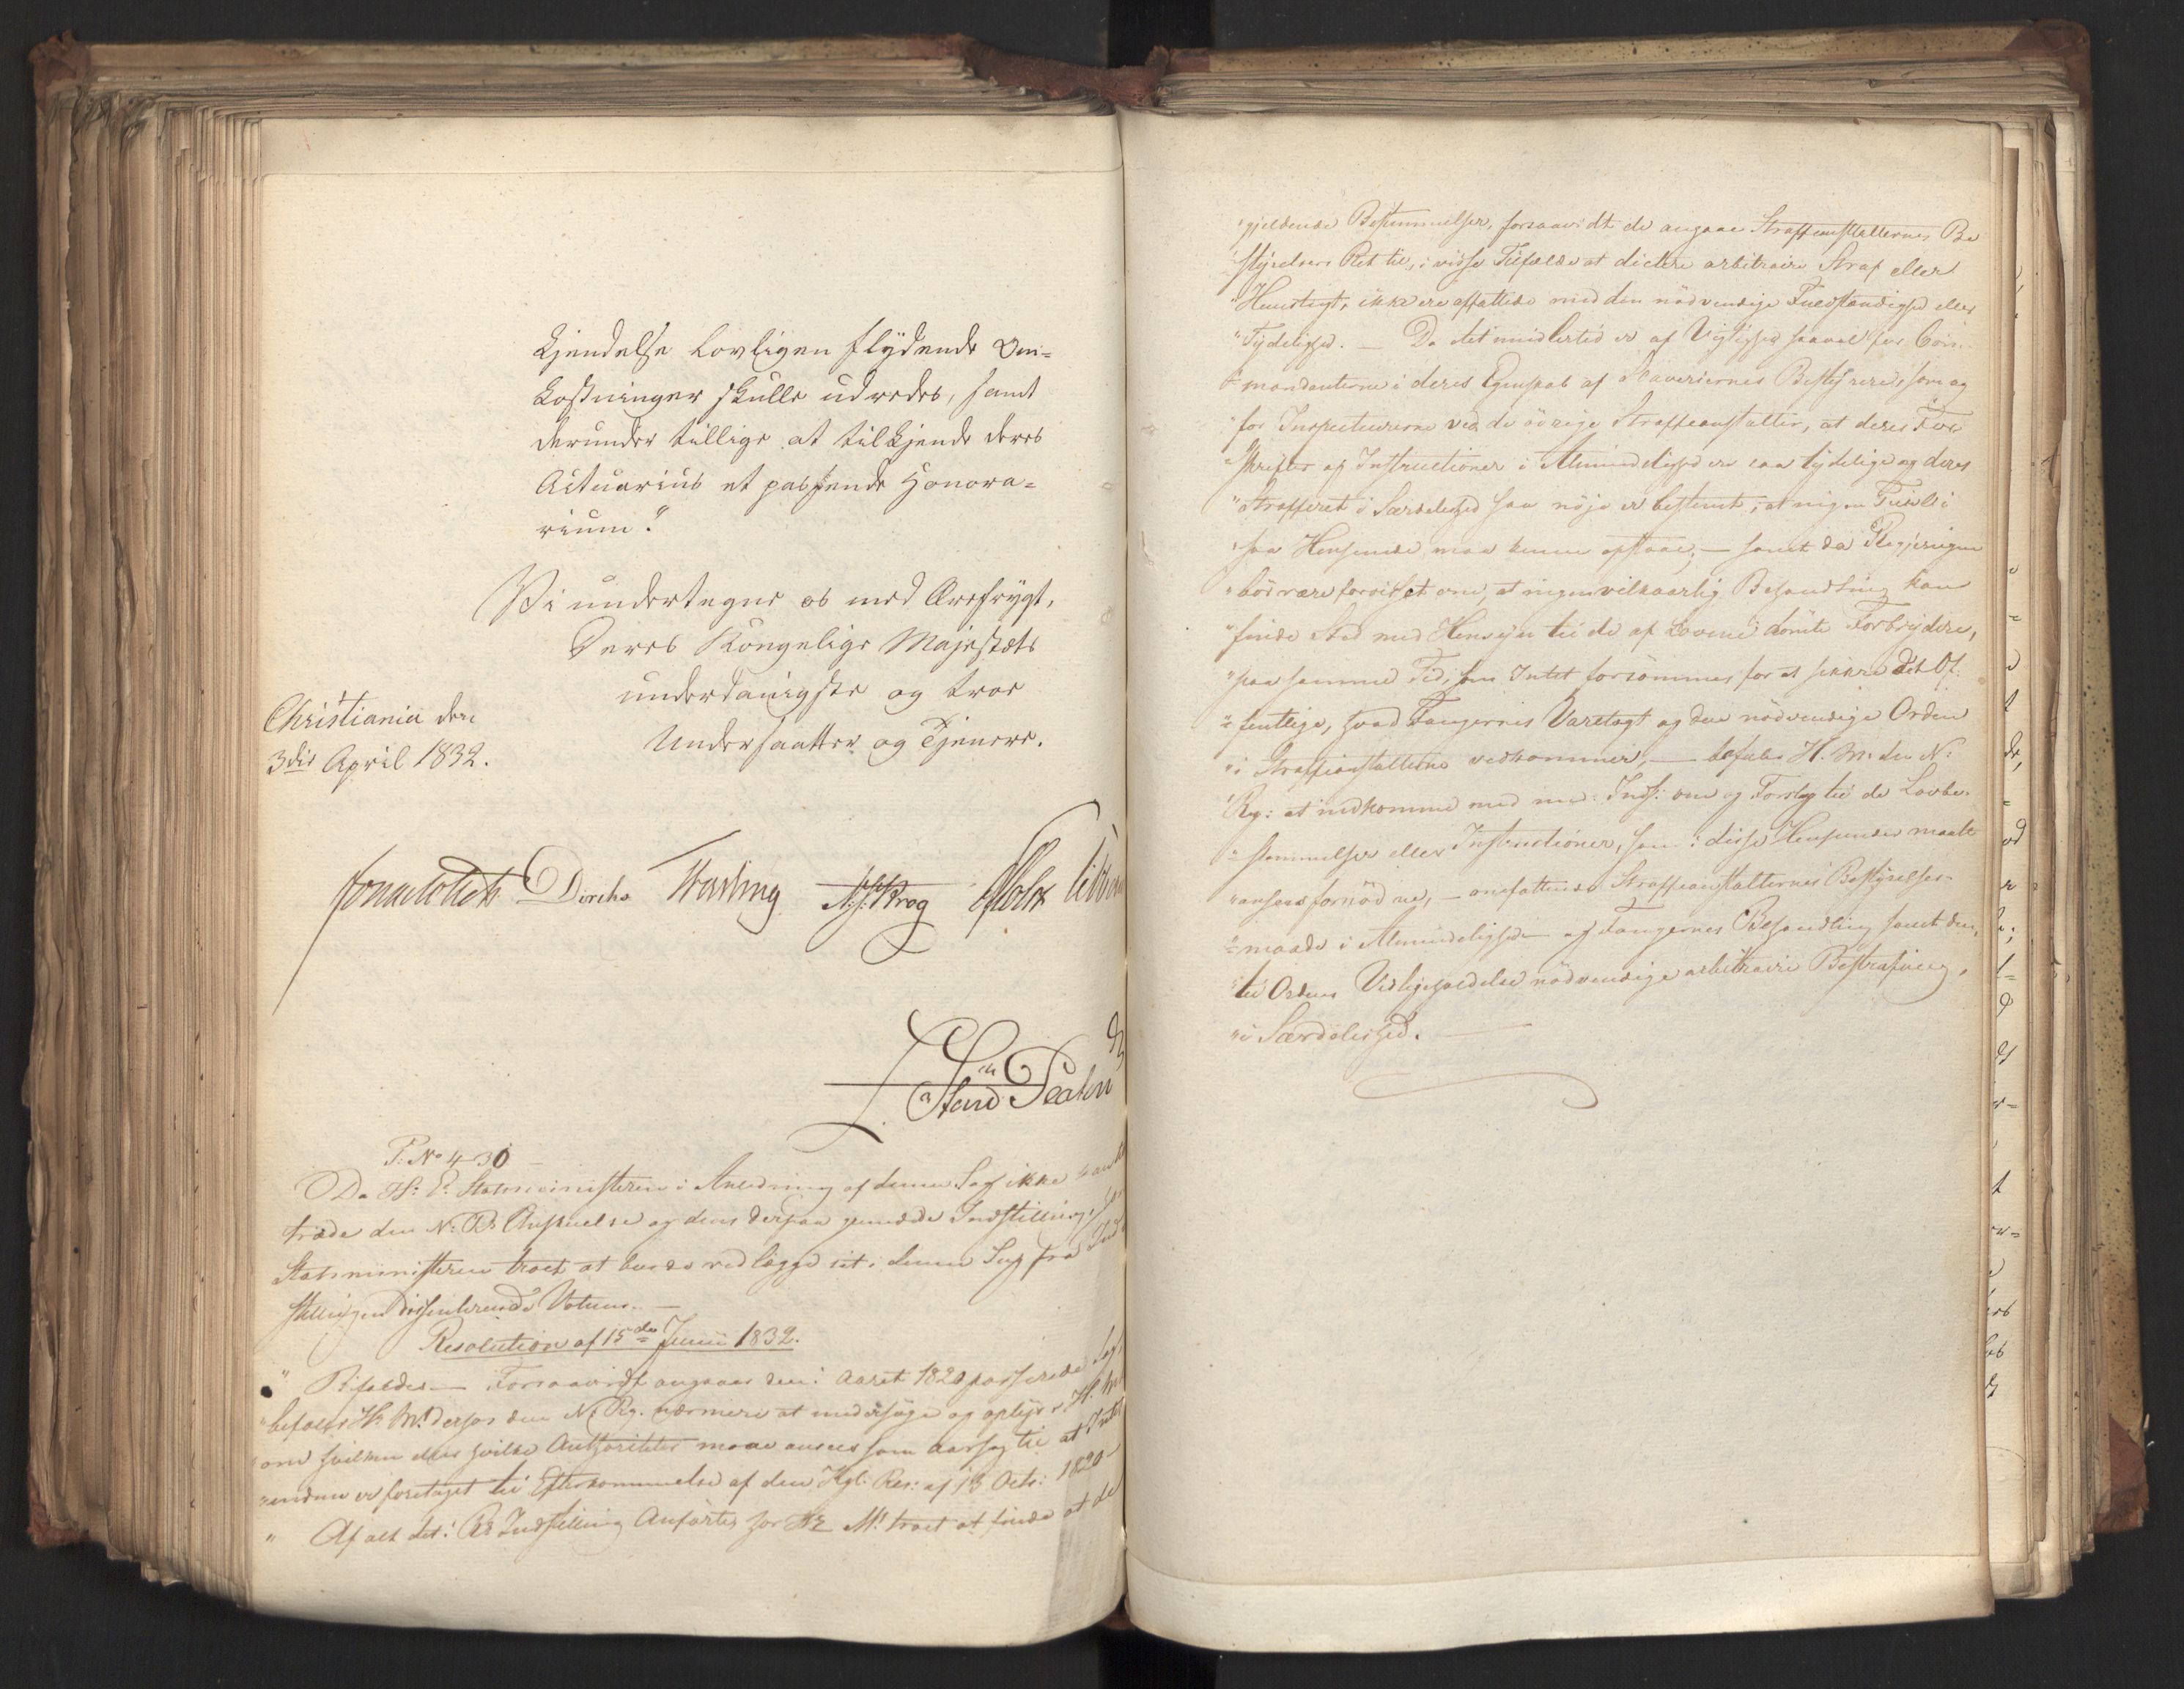 Kjendelse lovligen flydende Om-
kostninger skulle udredes, samt
derunder tillige at tilkjende deres
Actuarius et passende Honora-
rium."
Vi undertegne os med Ærefrygt,
Deres Kongelige Majestæts
underdanigste og troe
Undersaatter og Tjenere.
Christiania den
3die April 1832.
Collett Diriks Fasting Krog Holst
P: No 430
Da Hs. E. Statsministeren i Anledning af denne Sag ikke kan
træde den N: R: Anskuelse og dens derpaa grundede Indstilling,
Statsministeren troet at burde vedlægge sit i denne Sag fra Ind
stillingen dissenterende Votum. —
Resolution af 15de Junii 1832.
" Bifaldes — Forsaavidt angaaer den i Aaret 1820 passerede Sag,
"befaler H. M. derfor den N. Rg. nærmere at undersøge og oplyse H. M.
"om hvilken eller hvilke Authoriteter maae ansees som Aarsag til at Intet
"endnu er foretaget til Efterkommelse af den Kgl: Res: af 13 Octr: 1820 —
" Af alt det i Rs Indstilling Anførte har H. M. troet at finde at de
"gjeldende Bestemmelser, forsaavidt de angaae Straffeanstalternes Be
"styrelsers Ret til, i visse Tilfælde at dictere arbitraire Straf eller
"Huustugt, ikke ere affattede med den nødvendige Fuldstændighed eller
"Tydelighed. — Da det imidlertid er af Vigtighed saavel for Com-
"mandanterne i deres Egenskab af Slaveriernes Bestyrere, som og
"for Inspecteurerne ved de øvrige Straffeanstalter, at deres For
"skrifter og Instructioner i Almindelighed ere saa tydelige og deres
"Strafferet i Særdeleshed saa nøje er bestemt, at ingen Tvivl i
"saa Henseende maa kunne opstaae, — samt da Regjeringen
"bør være forvisset om, at ingen vilkaarlig Behandling kan
"finde Sted med Hensyn til de af Lovene dømte Forbrydere,
"paa samme Tid, som Intet forsømmes for at sikkre det Of-
"fentlige, hvad Fangernes Varetægt og den nødvendige Orden
"i Straffeanstalterne vedkommer, — befaler H. M. den N:
"Rg: at indkomme med und: Inds: om og Forslag til de Lovbe-
"stemmelser eller Instructioner, som i disse Henseender maatte
"ansees fornødne, — omfattende Straffeanstalternes Bestyrelses-
"maade i Almindelighed — og Fangernes Behandling samt den,
"til Ordens Vedligeholdelse nødvendige arbitraire Bestrafning,
"i Særdeleshed. —